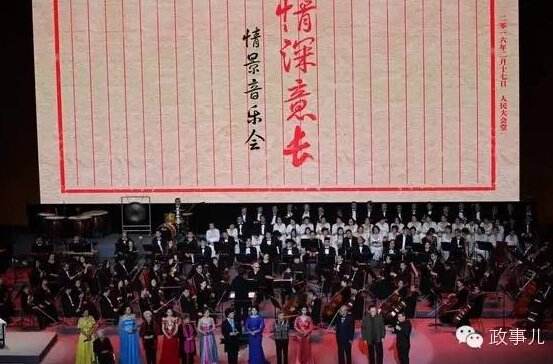 二零一六年二月十七日 人民大会堂
情深意长
情景音乐会
政事儿